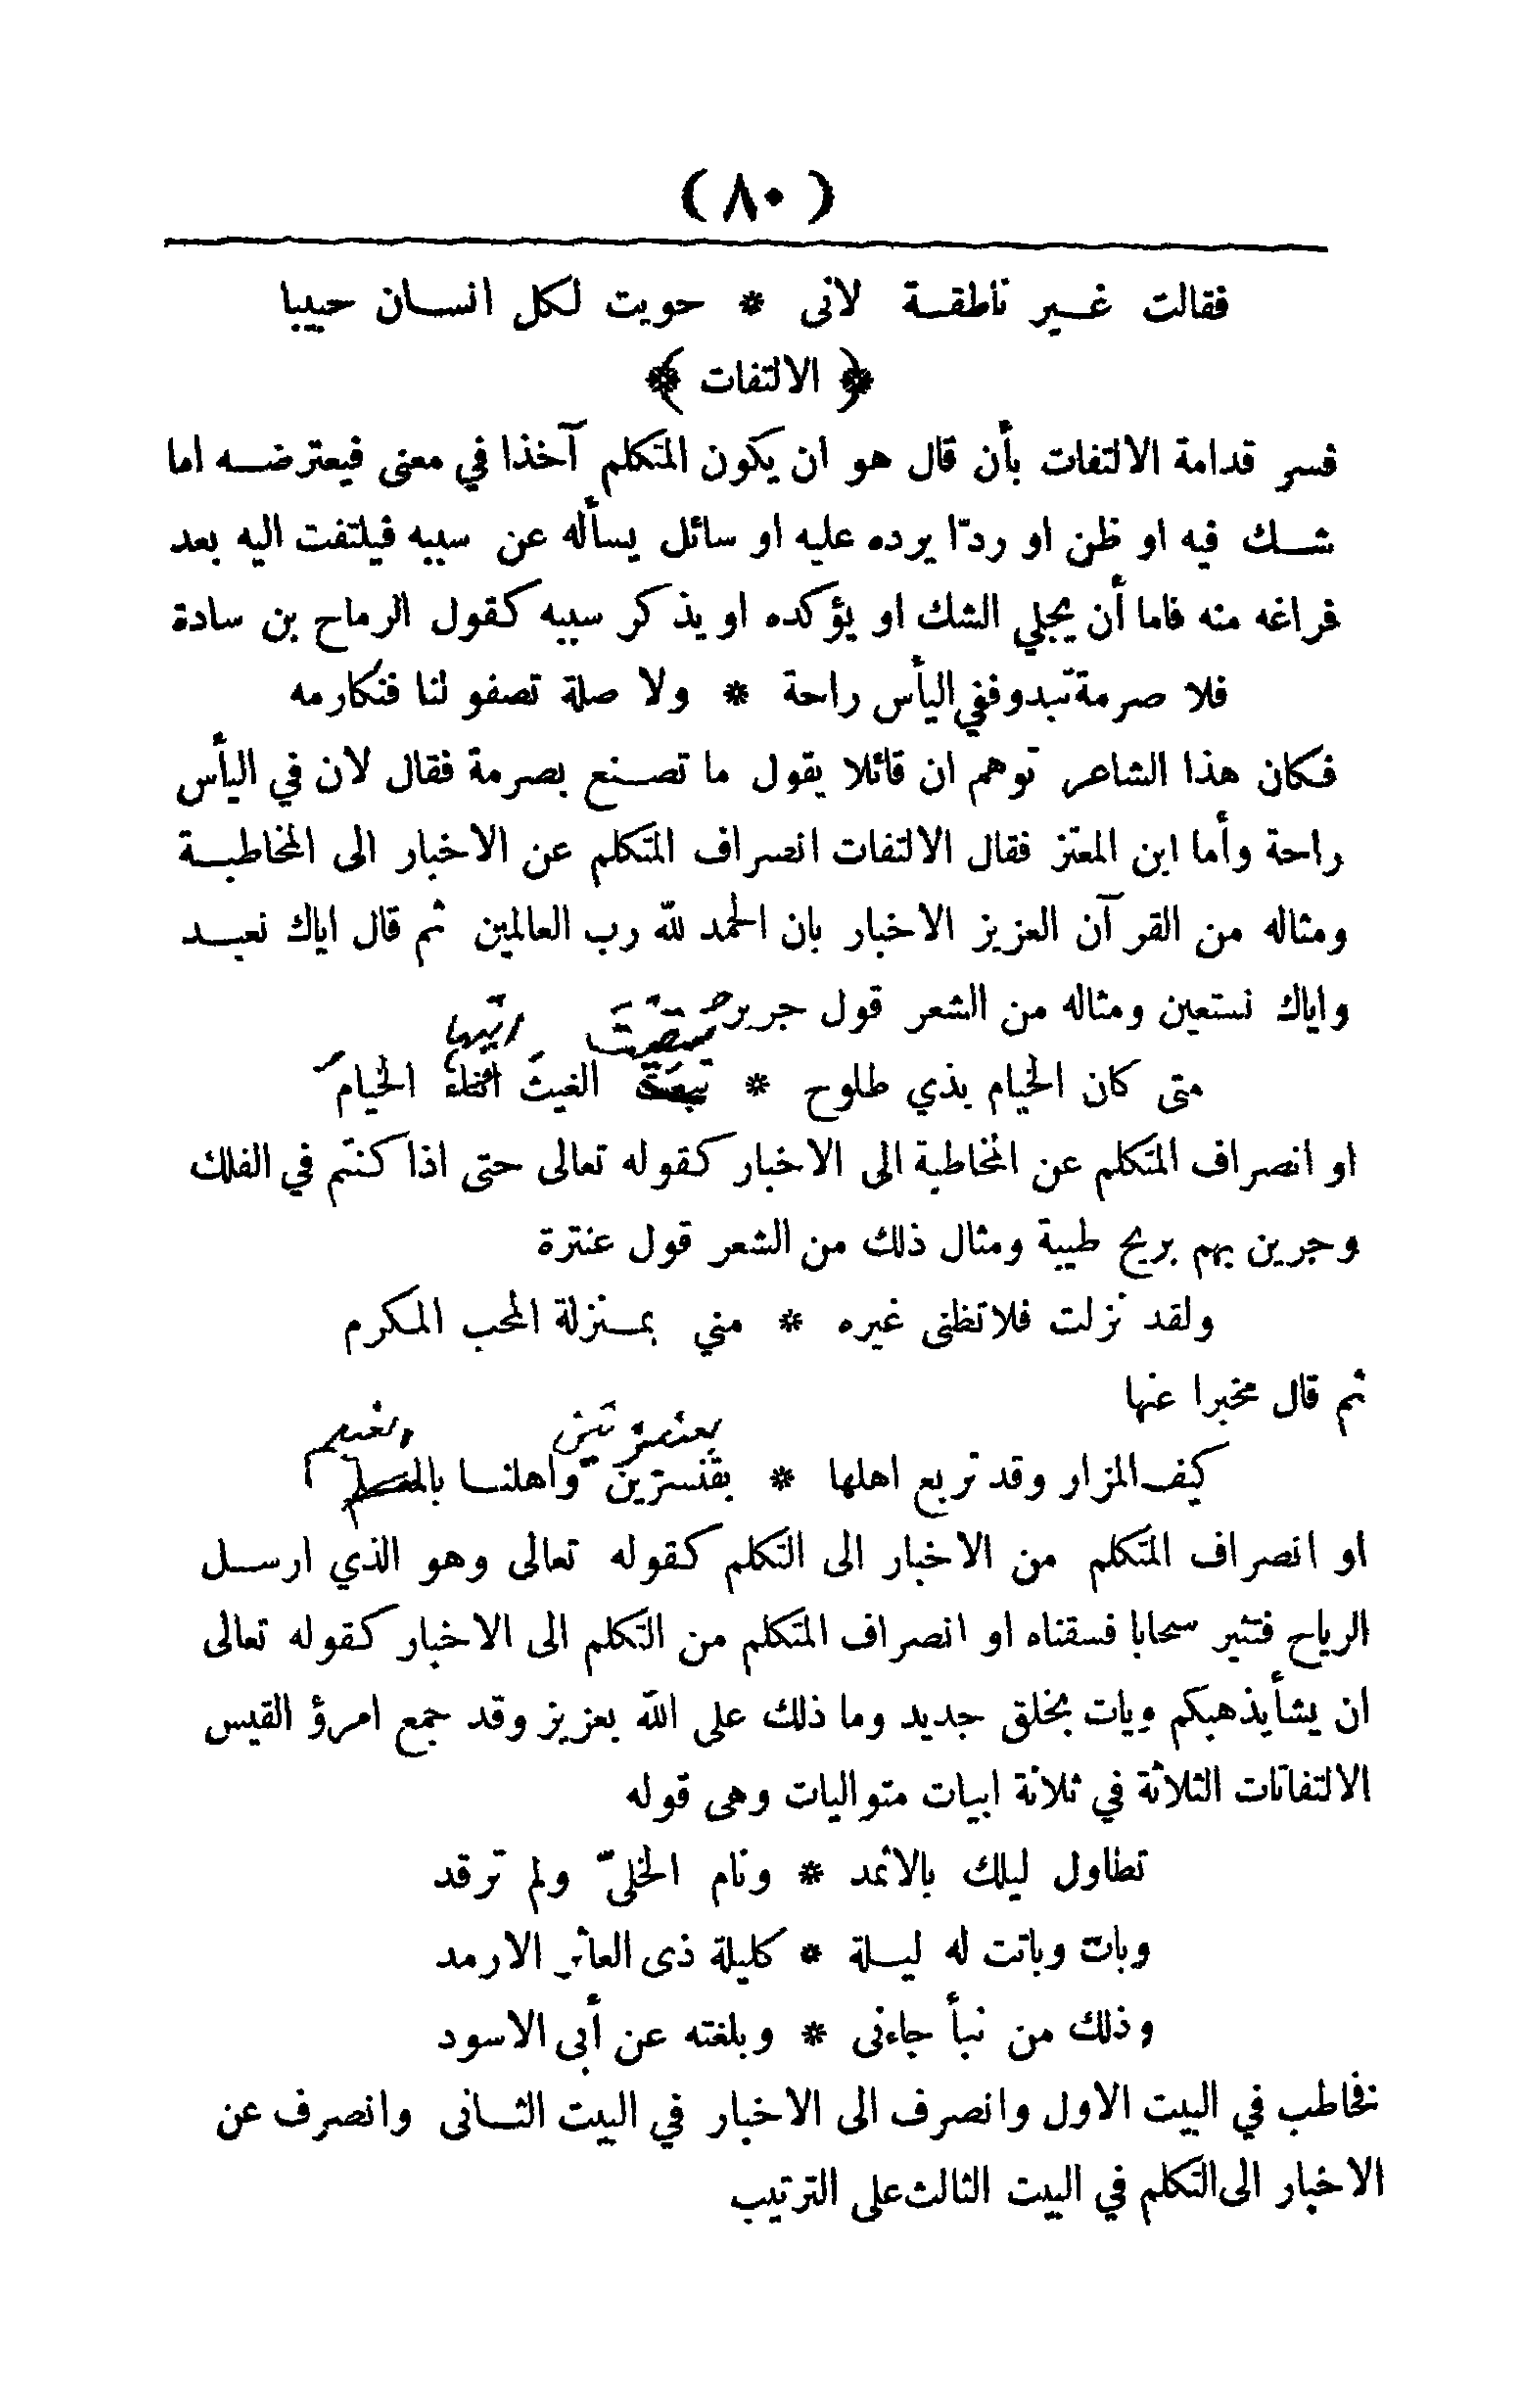 ( ٨٠ )
فقالت غير ناطقة لانى * حويت لكل انسان حبيبا
﴿ الالتفات ﴾
فسر قدامة الالتفات بأن قال هو ان يكون المتكلم آخذا في معنى فيعترضه اما
شك فيه او ظن او ردّا يرده عليه او سائل يسأله عن سببه فيلتفت اليه بعد
فراغه منه فاما أن يجلي الشك او يؤكده او يذكر سببه كقول الرماح بن سادة
فلا صرمة تبدو ففي اليأس راحة * ولا صلة تصفو لنا فنكارمه
فكان هذا الشاعر توهم ان قائلا يقول ما تصنع بصرمة فقال لان في اليأس
راحة وأما ابن المعتز فقال الالتفات انصراف المتكلم عن الاخبار الى المخاطبة
ومثاله من القرآن العزيز الاخبار بان الحمد لله رب العالمين ثم قال اياك نعبد
واياك نستعين ومثاله من الشعر قول جرير
سقيت ايتها
متى كان الخيام بذي طلوح * الغيثَ الخيام
او انصراف المتكلم عن المخاطبة الى الاخبار كقوله تعالى حتى اذا كنتم في الفلك
وجرين بهم بريح طيبة ومثال ذلك من الشعر قول عنترة
ولقد نزلت فلا تظنى غيره * مني بمنزلة المحب المكرم
ثم قال مخبرا عنها
بعنيزتين
كيف المزار وقد تربع اهلها * بقنسترين واهلنا
او انصراف المتكلم من الاخبار الى التكلم كقوله تعالى وهو الذي ارسل
الرياح فتثير سحابا فسقناه او انصراف المتكلم من التكلم الى الاخبار كقوله تعالى
ان يشأ يذهبكم ويات بخلق جديد وما ذلك على الله بعزيز وقد جمع امرؤ القيس
الالتفاتات الثلاثة في ثلاثة ابيات متواليات وهى قوله
تطاول ليلك بالاثمد * ونام الخلىّ ولم ترقد
وبات وباتت له ليلة * كليلة ذى العائر الارمد
وذلك من نبأ جاءنى * وبلغته عن أبى الاسود
فخاطب في البيت الاول وانصرف الى الاخبار في البيت الثانى وانصرف عن
الاخبار الى التكلم في البيت الثالث على الترتيب